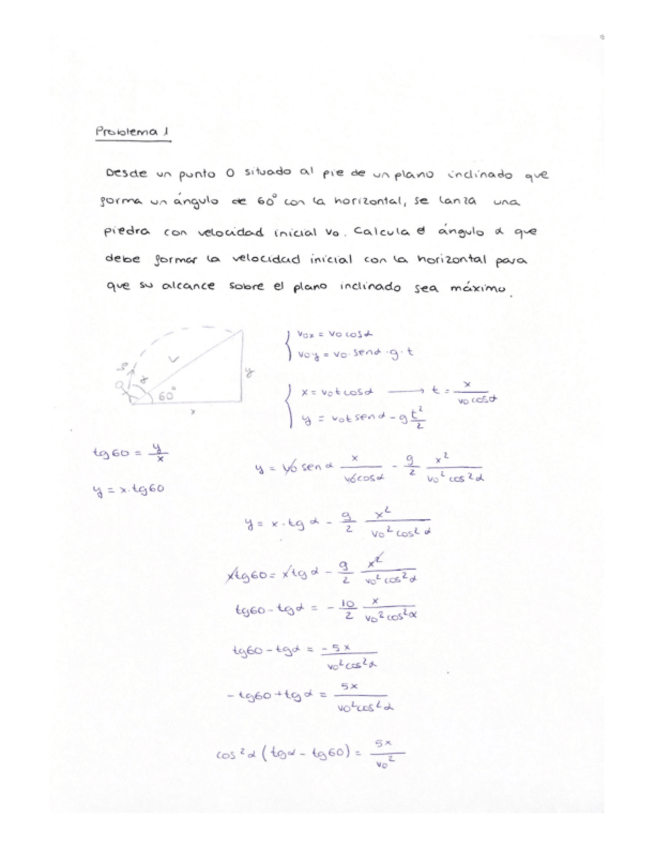 Problema 1
Desde un punto O situado al pie de un plano inclinado que
forma un ángulo de 60° con la horizontal, se lanza una
piedra con velocidad inicial vo. Calcula el ángulo α que
debe formar la velocidad inicial con la horizontal para
que su alcance sobre el plano inclinado sea máximo.
vox = vo cosα
voy = vo·senα - g·t
vo
α
L
60°
y
x
x = vo t cosα → t = x / vo cosα
y = vo t senα - g t²/2
tg60 = y/x
y = x·tg60
y = vo senα x / vo cosα - g/2 x² / vo² cos²α
y = x·tg α - g/2 x² / vo² cos² α
xtg60 = xtgα - g/2 x² / vo² cos²α
tg60 - tgα = - 10/2 x / vo² cos²α
tg60 - tgα = -5x / vo² cos²α
- tg60 + tgα = 5x / vo² cos²α
cos²α (tgα - tg60) = 5x / vo²